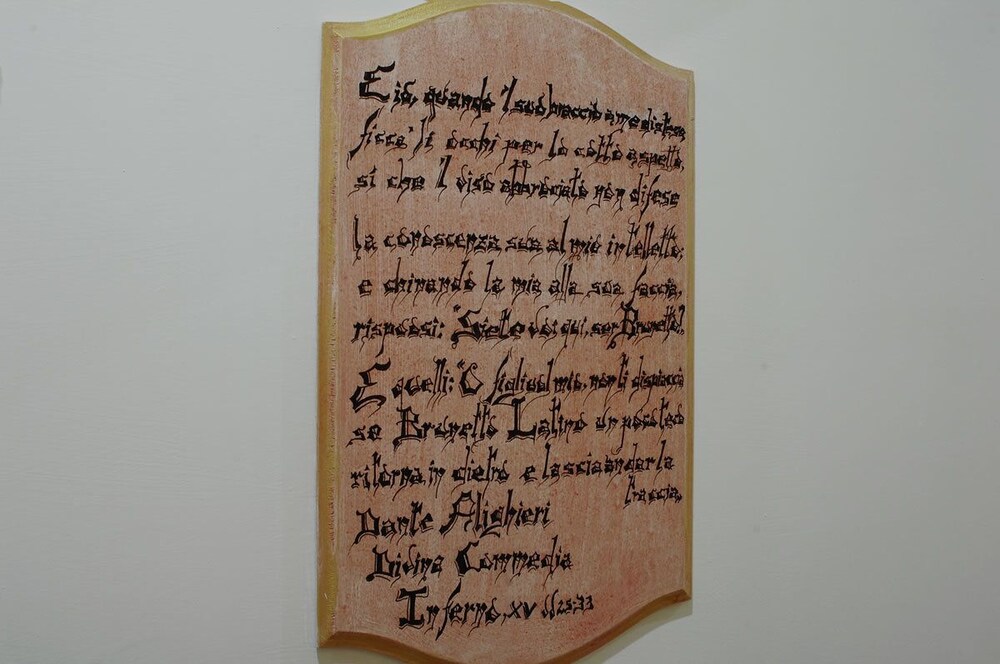 E io, quando 'l suo braccio a me distese
ficca' li occhi per lo cotto aspetto,
sì che 'l viso abbrociato non difese
la conoscenza sua al mio intelletto;
e chinando la mia alla sua faccia,
rispuosi: "Siete voi qui, ser Brunetto?"
E quelli: "O figliuol mio, non ti dispiaccia
se Brunetto Latino un poco teco
ritorna in dietro e lascia andar la
traccia.
Dante Alighieri
Divina Commedia
Inferno, XV 25;33